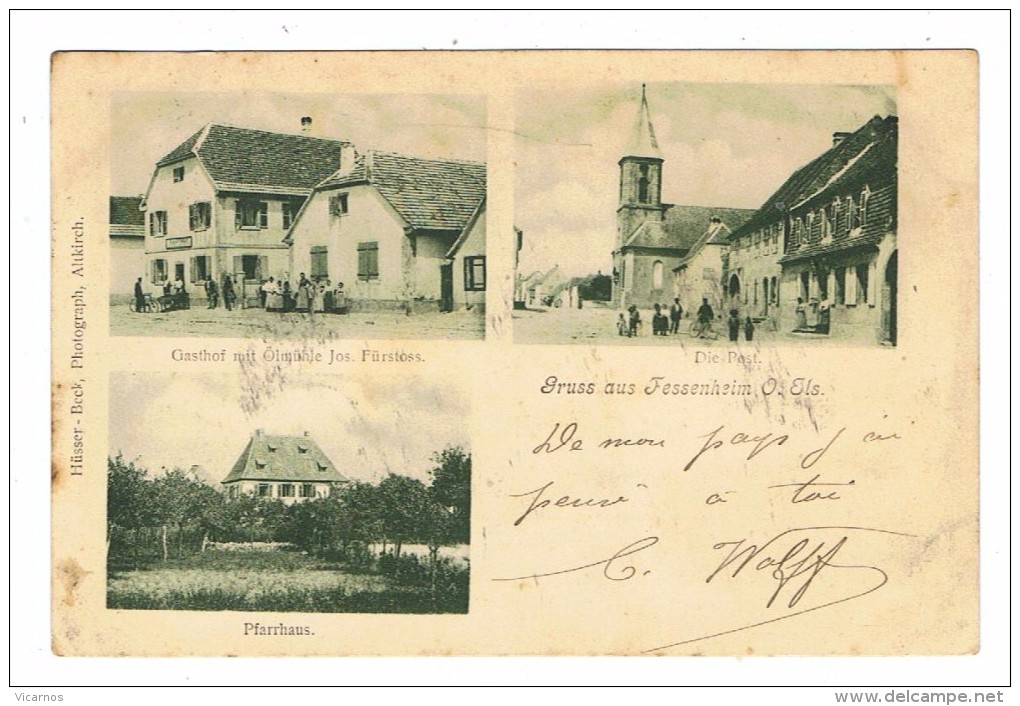 Hüsser-Beck, Photograph, Altkirch.
Gasthof mit Ölmühle Jos. Fürstoss.
Die Post.
Gruss aus Fessenheim O. Els.
De mon pays j'ai
pensé à toi
C. Wolff
Pfarrhaus.
Vicarnos
delcampe.net